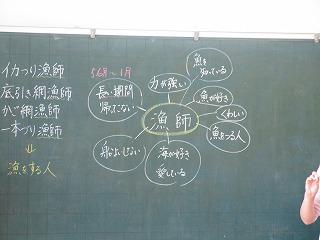 イカつり漁師
底引き網漁師
かご網漁師
一本づり漁師
⇓
漁をする人
5、6月〜1月
長い期間
帰ってこない
力が強い
魚を
知っている
魚が好き
くわしい
魚をつる人
漁師
船よいしない
海が好き
愛している